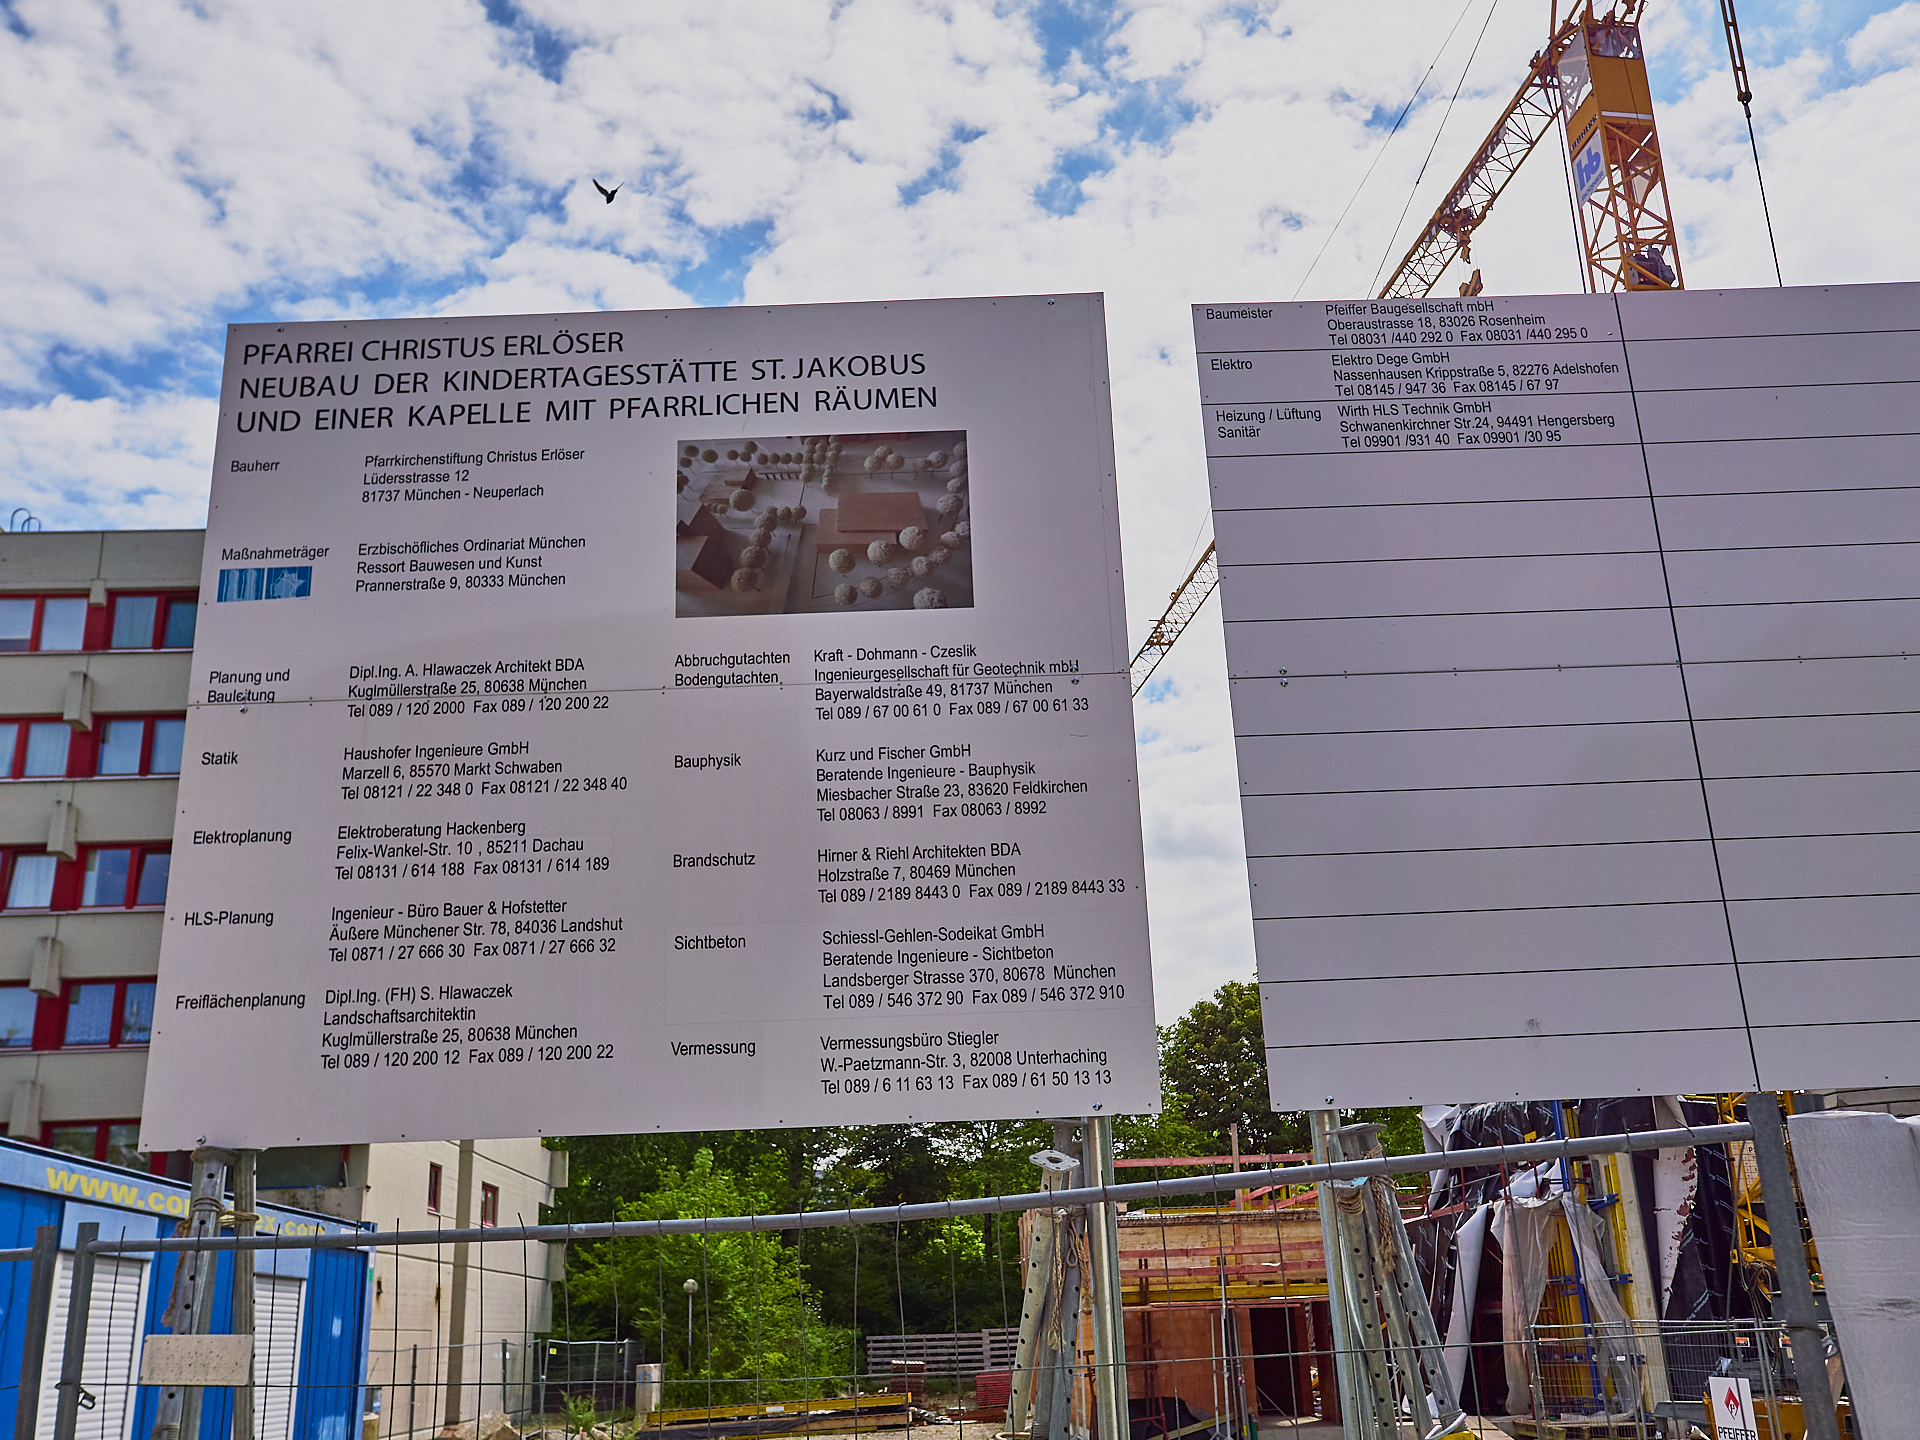 PFARREI CHRISTUS ERLÖSER
NEUBAU DER KINDERTAGESSTÄTTE ST. JAKOBUS
UND EINER KAPELLE MIT PFARRLICHEN RÄUMEN
Bauherr
Pfarrkirchenstiftung Christus Erlöser
Lüdersstrasse 12
81737 München - Neuperlach
Maßnahmeträger
Erzbischöfliches Ordinariat München
Ressort Bauwesen und Kunst
Prannerstraße 9, 80333 München
Planung und
Bauleitung
Dipl.Ing. A. Hlawaczek Architekt BDA
Kuglmüllerstraße 25, 80638 München
Tel 089 / 120 2000 Fax 089 / 120 200 22
Statik
Haushofer Ingenieure GmbH
Marzell 6, 85570 Markt Schwaben
Tel 08121 / 22 348 0 Fax 08121 / 22 348 40
Elektroplanung
Elektroberatung Hackenberg
Felix-Wankel-Str. 10 , 85211 Dachau
Tel 08131 / 614 188 Fax 08131 / 614 189
HLS-Planung
Ingenieur - Büro Bauer & Hofstetter
Äußere Münchener Str. 78, 84036 Landshut
Tel 0871 / 27 666 30 Fax 0871 / 27 666 32
Freiflächenplanung
Dipl.Ing. (FH) S. Hlawaczek
Landschaftsarchitektin
Kuglmüllerstraße 25, 80638 München
Tel 089 / 120 200 12 Fax 089 / 120 200 22
Abbruchgutachten
Bodengutachten
Kraft - Dohmann - Czeslik
Ingenieurgesellschaft für Geotechnik mbH
Bayerwaldstraße 49, 81737 München
Tel 089 / 67 00 61 0 Fax 089 / 67 00 61 33
Bauphysik
Kurz und Fischer GmbH
Beratende Ingenieure - Bauphysik
Miesbacher Straße 23, 83620 Feldkirchen
Tel 08063 / 8991 Fax 08063 / 8992
Brandschutz
Hirner & Riehl Architekten BDA
Holzstraße 7, 80469 München
Tel 089 / 2189 8443 0 Fax 089 / 2189 8443 33
Sichtbeton
Schiessl-Gehlen-Sodeikat GmbH
Beratende Ingenieure - Sichtbeton
Landsberger Strasse 370, 80678 München
Tel 089 / 546 372 90 Fax 089 / 546 372 910
Vermessung
Vermessungsbüro Stiegler
W.-Paetzmann-Str. 3, 82008 Unterhaching
Tel 089 / 6 11 63 13 Fax 089 / 61 50 13 13
Baumeister
Pfeiffer Baugesellschaft mbH
Oberaustrasse 18, 83026 Rosenheim
Tel 08031 /440 292 0 Fax 08031 /440 295 0
Elektro
Elektro Dege GmbH
Nassenhausen Krippstraße 5, 82276 Adelshofen
Tel 08145 / 947 36 Fax 08145 / 67 97
Heizung / Lüftung
Sanitär
Wirth HLS Technik GmbH
Schwanenkirchner Str.24, 94491 Hengersberg
Tel 09901 /931 40 Fax 09901 /30 95
hb
PFEIFFER